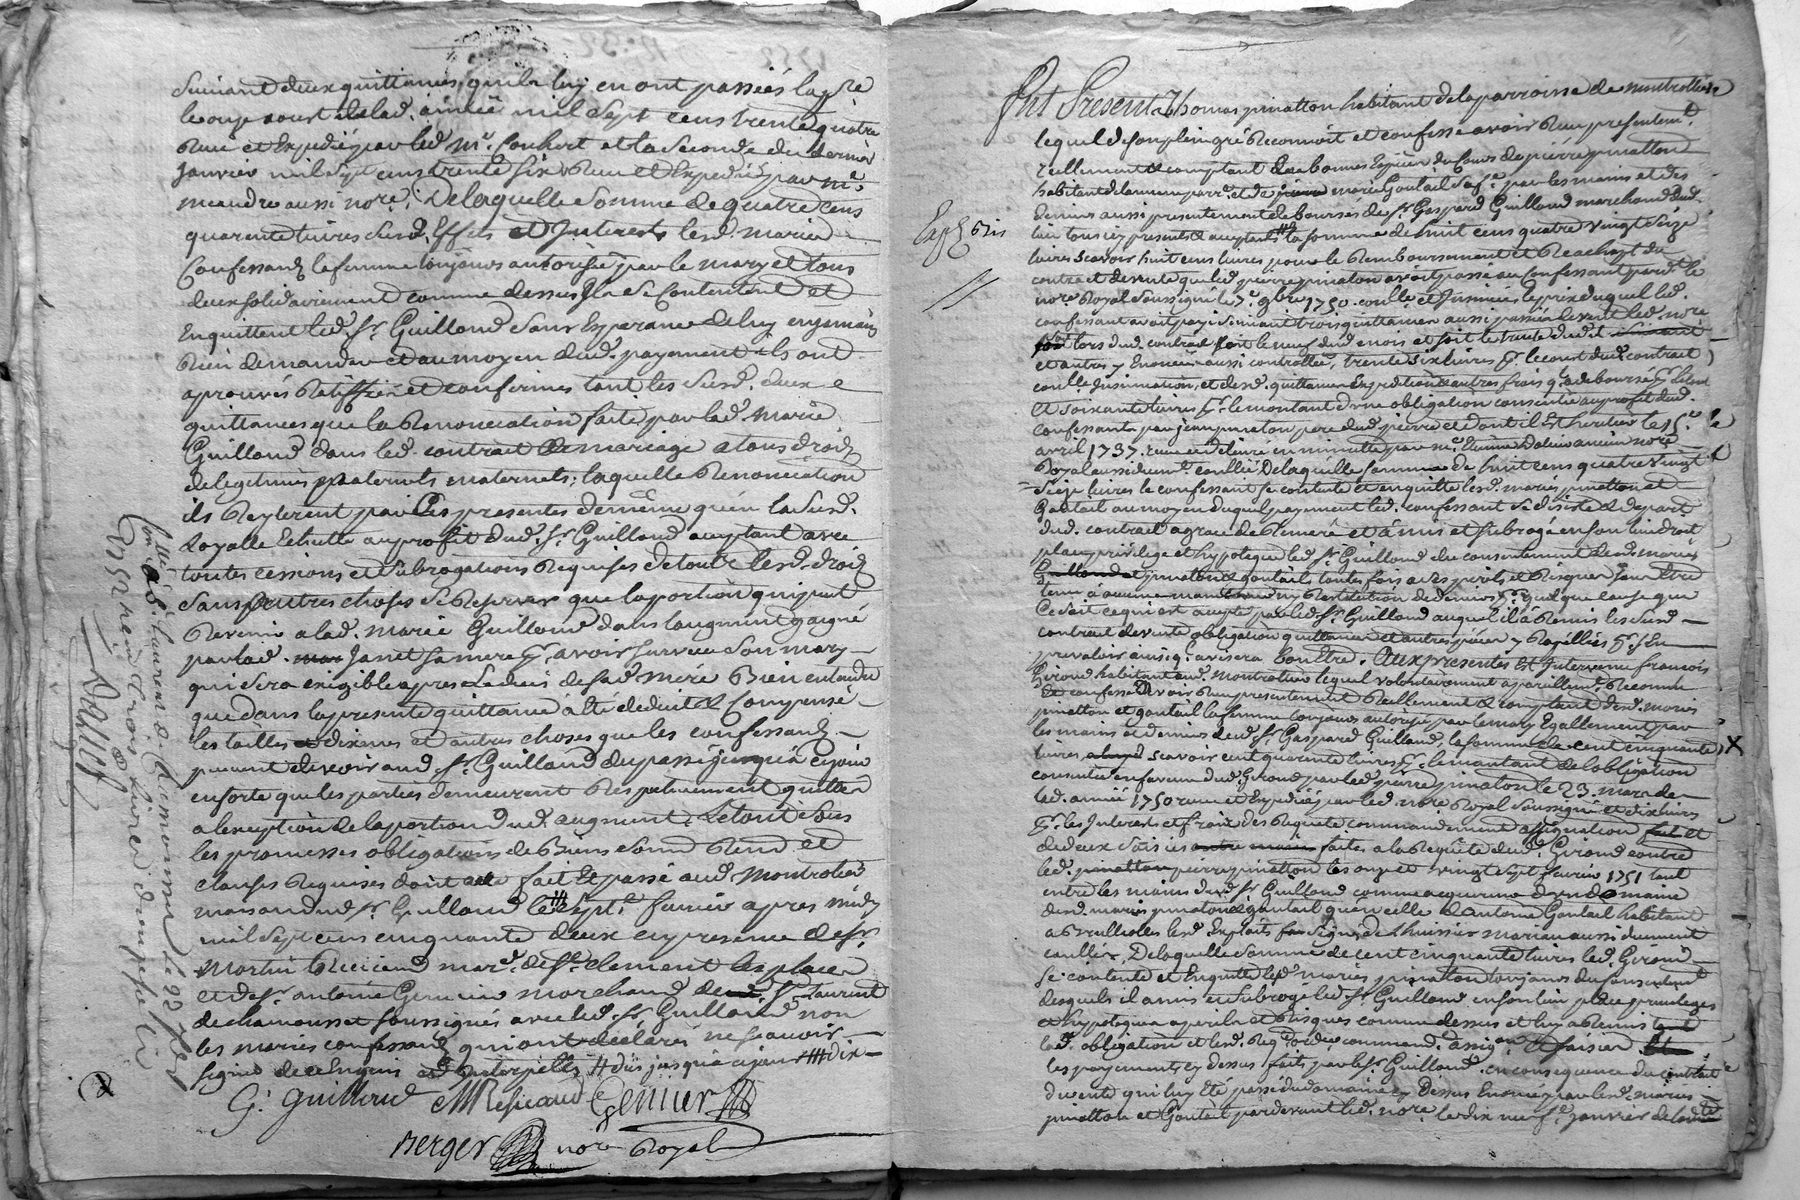 Suivant deux quittances qu'ils luy en ont passées la p.re
le onze aoust de lad. année mil sept cens trente quatre
Reüe et Expediée par led. M.e Conbert et la Seconde du dernier
Janvier mil sept cens trente six Reüe et Expediée par m.e
meandre aussi nore; De laquelle Somme de quatre cens
quarente livres Susd. Effets et Interests lesd. mariés
Confessans la femme toujours autorisée par le mary et tous
deux solidairement comme dessus Ils se Contentent et
Enquittent led. Sr. Guilloud Sans Esperance de luy en jamais
Rien demander et au moyen dud. payement ils ont
aprouvés Ratiffiée et confirmes tant les Susd. deux
quittances que la Renonciation faite par lad. Marie
Guilloud dans led. contrat de mariage a tous droits
de legitimes paternels maternels; laquelle Renonciation
ils Reyterent par Ces presentes de même qu'en la Susd.
Loyalle Echutte au profit dud. Sr. Guilloud acceptant avec
toutes cessions et Subrogations Requises de toutes lesd. droits
Sans d'autres choses Se Reserver que la portion qui peut
Revenir a lad. Marie Guilloud dans l'augment gaigné
par lad. Janet Sa mere pr. avoir Survecu Son mary
qui Sera exigible apres Le deces de sad. mere Bien entendu
que dans la presente quittance a été déduit & Compensé
les tailles dixmes et autres choses que les confessants
peuvent devoir aud. Sr. Guilloud du passé jusqu'a Ce jour
ensorte que les parties demeurent Respectivement quittes
a l'exeption de la portion dud. augment. Le tout Sous
les promesses obligations de Biens Soumd. Renod. et
clauses Requises dont acte fait Et passé aud. Montrotier
maison dud. Sr. Guilloud le Sept.e fevrier apres midy
mil sept cens cinquante deux en presence de Sr.
Martin Ressicaud mard. de St. Clement les places
et de Sr. antoine Genevier marchand de St. Laurent
de chamousset soussignés avec led. Sr. Guilloud non
les mariés confessants qui ont déclarés ne scavoir
signer de ce Enquis et Interpellés # düs jusqu'a ce jour ## dix
G. Guilloud MRessicaud Genevier
Berger nore Royal
Con.llé a St. Laurent de Chamousset le 22 fevr.
1752 Reçu trois livres douze sols
Donet
Sut Present Thomas pinatton habitant de la parroisse de Montrottier
lequel de son plein gré Reconnoit et confesse avoir Reçu presentemt.
Réellement & comptant En bonnes Espèces du Cours de pierre pinatton
habitant de la meme parr.e et de marie Goutail Sa fe. par les mains et des
deniers aussi presentement deboursés de Sr. Gaspard Guilloud marchand dud.
lieu tous icy presents & acceptants la somme de huit cens quatre vingt Seize
livres Scavoir huit cens livres pour le Remboursement et Reachept du
contrat de vente que led. pierre pinaton avoit passé au Confessant pardt. le
nore Royal Soussigné le 7.e 9bre 1750. conllé et Insinué, le prix duquel led.
confessant avoit payé Suivant trois quittances aussi passées devant led. nore
lors dud. contrat soit le neuf dud. mois et soit le trente dud.
et autres y Enoncées aussi controllées, trente six livres pr. le coust dud. contrat
conlle Insinuation, et desd. quittances Expeditions & autres frais q. a deboursé pr. led.
Et soixante livres pr. le montant d'une obligation consentie au profit dud.
Confessant par jean pinaton pere dud. pierre et dont il Est heritier le 15.e
avril 1737. reçue en minutte par me. nore
Royal aussi duemt. conllée, De laquelle somme de huit cens quatre vingt
Seize livres le confessant se contente et enquitte lesd. mariés pinatton et
Goutail au moyen duquel payement led. confessant Se desiste & depart
dud. contrat a grace de Remeré et a mis et subrogé en son lieu droit
place privilege et hypoteque led. Sr. Guilloud du consentement desd. mariés
pinaton & goutail toutes fois a ses perils et Risques Sans Etre
tenu a aucune restitution de deniers pr. quelque cause que
Ce soit ce qui est accepté par led. Sr. Guilloud auquel il a Remis les Susd.
contrat de vente obligation quittances et autres pieces y Rapellées pr. s'En
prevaloir ainsi q. avisera Bon Etre. Aux presentes Est Intervenu francois
Girond habitant aud. Montrotier lequel volontairement a pareillemt. Reconnu
et confessé avoir Reçu presentement Reellement & comptant desd. mariés
pinatton et goutail la femme toujours autorisée par le mary Egallement par
les mains et deniers dud. Sr. Gaspard Guilloud, la somme de cent cinquante X
livres scavoir cent quarente livres pr. le montant de l'obligation
consentie en faveur dud. Girond par led. pierre pinaton le 23. mars de
lad. année 1750 reçue et Expediée par led. nore Royal Soussigné et dix livres
pr. les Interests et frais des Requete commandement assignation
de deux Saisies faites a la Requete dud. Girond contre
led. pierre pinatton les onze et vingt Sept fevrier 1751 tant
entre les mains dud. Sr. Guilloud comme acquereur d'un domaine
desd. mariés pinaton & goutail qu'en celle d'antoine Goutail habitant
a Brullioles lesd. Exploits Signés de l'huissier Marian aussi duement
conllés, De laquelle Somme de cent cinquante livres led. Girond
Se contente et Enquitte lesd. mariés pinatton toujours du Consentement
desquels il a mis et Subrogé led. Sr. Guilloud en son lieu place privileges
et hypoteques a perils et Risques comme dessus et luy a Remis
lad. obligation et lesd. Reqte ordce commandt. assigon. & saisies.
les payements cy dessus faits par le Sr. Guilloud en consequence du contrat
de vente qui luy Eté passé du domaine cy dessus Enoncé par lesd. mariés
pinattoh et Goutail par devant led. nore le dix neuf.e janvier de lad.
Exp.é bis